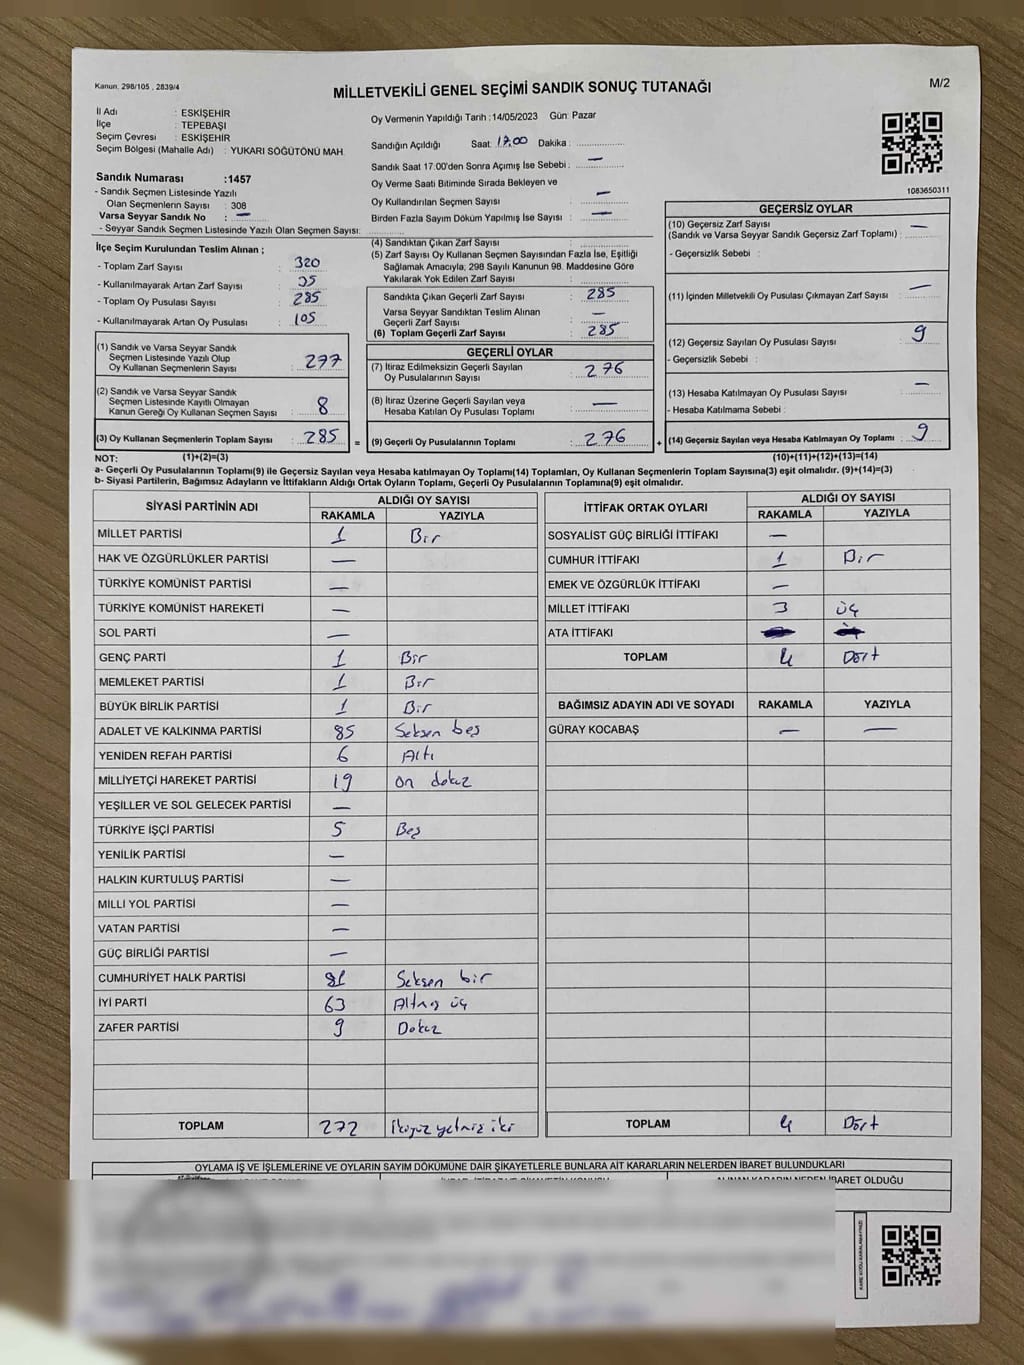 Kanun. 298/105 , 2839/4
MİLLETVEKİLİ GENEL SEÇİMİ SANDIK SONUÇ TUTANAĞI
M/2
İl Adı : ESKİŞEHİR
İlçe : TEPEBAŞI
Seçim Çevresi : ESKİŞEHİR
Seçim Bölgesi (Mahalle Adı) : YUKARI SÖĞÜTÖNÜ MAH.
Sandık Numarası :1457
- Sandık Seçmen Listesinde Yazılı
Olan Seçmenlerin Sayısı : 308
Varsa Seyyar Sandık No : —
- Seyyar Sandık Seçmen Listesinde Yazılı Olan Seçmen Sayısı:
Oy Vermenin Yapıldığı Tarih :14/05/2023 Gün: Pazar
Sandığın Açıldığı Saat: 17.00 Dakika :
Sandık Saat 17:00'den Sonra Açımış İse Sebebi : —
Oy Verme Saati Bitiminde Sırada Bekleyen ve
Oy Kullandırılan Seçmen Sayısı : —
Birden Fazla Sayım Döküm Yapılmış İse Sayısı : —
1083650311
İlçe Seçim Kurulundan Teslim Alınan ;
- Toplam Zarf Sayısı : 320
- Kullanılmayarak Artan Zarf Sayısı : 35
- Toplam Oy Pusulası Sayısı : 285
- Kullanılmayarak Artan Oy Pusulası : 105
(1) Sandık ve Varsa Seyyar Sandık
Seçmen Listesinde Yazılı Olup
Oy Kullanan Seçmenlerin Sayısı : 277
(2) Sandık ve Varsa Seyyar Sandık
Seçmen Listesinde Kayıtlı Olmayan
Kanun Gereği Oy Kullanan Seçmen Sayısı : 8
(3) Oy Kullanan Seçmenlerin Toplam Sayısı : 285 =
(4) Sandıktan Çıkan Zarf Sayısı :
(5) Zarf Sayısı Oy Kullanan Seçmen Sayısından Fazla İse, Eşitliği
Sağlamak Amacıyla, 298 Sayılı Kanunun 98. Maddesine Göre
Yakılarak Yok Edilen Zarf Sayısı :
Sandıkta Çıkan Geçerli Zarf Sayısı : 285
Varsa Seyyar Sandıktan Teslim Alınan
Geçerli Zarf Sayısı : —
(6) Toplam Geçerli Zarf Sayısı : 285
GEÇERLİ OYLAR
(7) İtiraz Edilmeksizin Geçerli Sayılan
Oy Pusulalarının Sayısı : 276
(8) İtiraz Üzerine Geçerli Sayılan veya
Hesaba Katılan Oy Pusulası Toplamı : —
(9) Geçerli Oy Pusulalarının Toplamı : 276 +
GEÇERSİZ OYLAR
(10) Geçersiz Zarf Sayısı
(Sandık ve Varsa Seyyar Sandık Geçersiz Zarf Toplamı) : —
- Geçersizlik Sebebi :
(11) İçinden Milletvekili Oy Pusulası Çıkmayan Zarf Sayısı : —
(12) Geçersiz Sayılan Oy Pusulası Sayısı : 9
- Geçersizlik Sebebi :
(13) Hesaba Katılmayan Oy Pusulası Sayısı : —
- Hesaba Katılmama Sebebi :
(14) Geçersiz Sayılan veya Hesaba Katılmayan Oy Toplamı : 9
NOT: (1)+(2)=(3) (10)+(11)+(12)+(13)=(14)
a- Geçerli Oy Pusulalarının Toplamı(9) ile Geçersiz Sayılan veya Hesaba katılmayan Oy Toplamı(14) Toplamları, Oy Kullanan Seçmenlerin Toplam Sayısına(3) eşit olmalıdır. (9)+(14)=(3)
b- Siyasi Partilerin, Bağımsız Adayların ve İttifakların Aldığı Ortak Oyların Toplamı, Geçerli Oy Pusulalarının Toplamına(9) eşit olmalıdır.
SİYASİ PARTİNİN ADI ALDIĞI OY SAYISI
RAKAMLA YAZIYLA
MİLLET PARTİSİ 1 Bir
HAK VE ÖZGÜRLÜKLER PARTİSİ —
TÜRKİYE KOMÜNİST PARTİSİ —
TÜRKİYE KOMÜNİST HAREKETİ —
SOL PARTİ —
GENÇ PARTİ 1 Bir
MEMLEKET PARTİSİ 1 Bir
BÜYÜK BİRLİK PARTİSİ 1 Bir
ADALET VE KALKINMA PARTİSİ 85 Seksen beş
YENİDEN REFAH PARTİSİ 6 Altı
MİLLİYETÇİ HAREKET PARTİSİ 19 on dokuz
YEŞİLLER VE SOL GELECEK PARTİSİ —
TÜRKİYE İŞÇİ PARTİSİ 5 Beş
YENİLİK PARTİSİ —
HALKIN KURTULUŞ PARTİSİ —
MİLLİ YOL PARTİSİ —
VATAN PARTİSİ —
GÜÇ BİRLİĞİ PARTİSİ —
CUMHURİYET HALK PARTİSİ 81 Seksen bir
İYİ PARTİ 63 Altmış üç
ZAFER PARTİSİ 9 Dokuz
TOPLAM 272 ikiyüz yetmiş iki
İTTİFAK ORTAK OYLARI ALDIĞI OY SAYISI
RAKAMLA YAZIYLA
SOSYALİST GÜÇ BİRLİĞİ İTTİFAKI —
CUMHUR İTTİFAKI 1 Bir
EMEK VE ÖZGÜRLÜK İTTİFAKI —
MİLLET İTTİFAKI 3 üç
ATA İTTİFAKI
TOPLAM 4 Dört
BAĞIMSIZ ADAYIN ADI VE SOYADI RAKAMLA YAZIYLA
GÜRAY KOCABAŞ — —
TOPLAM 4 Dört
OYLAMA İŞ VE İŞLEMLERİNE VE OYLARIN SAYIM DÖKÜMÜNE DAİR ŞİKAYETLERLE BUNLARA AİT KARARLARIN NELERDEN İBARET BULUNDUKLARI
ALINAN KARARIN NEDEN İBARET OLDUĞU